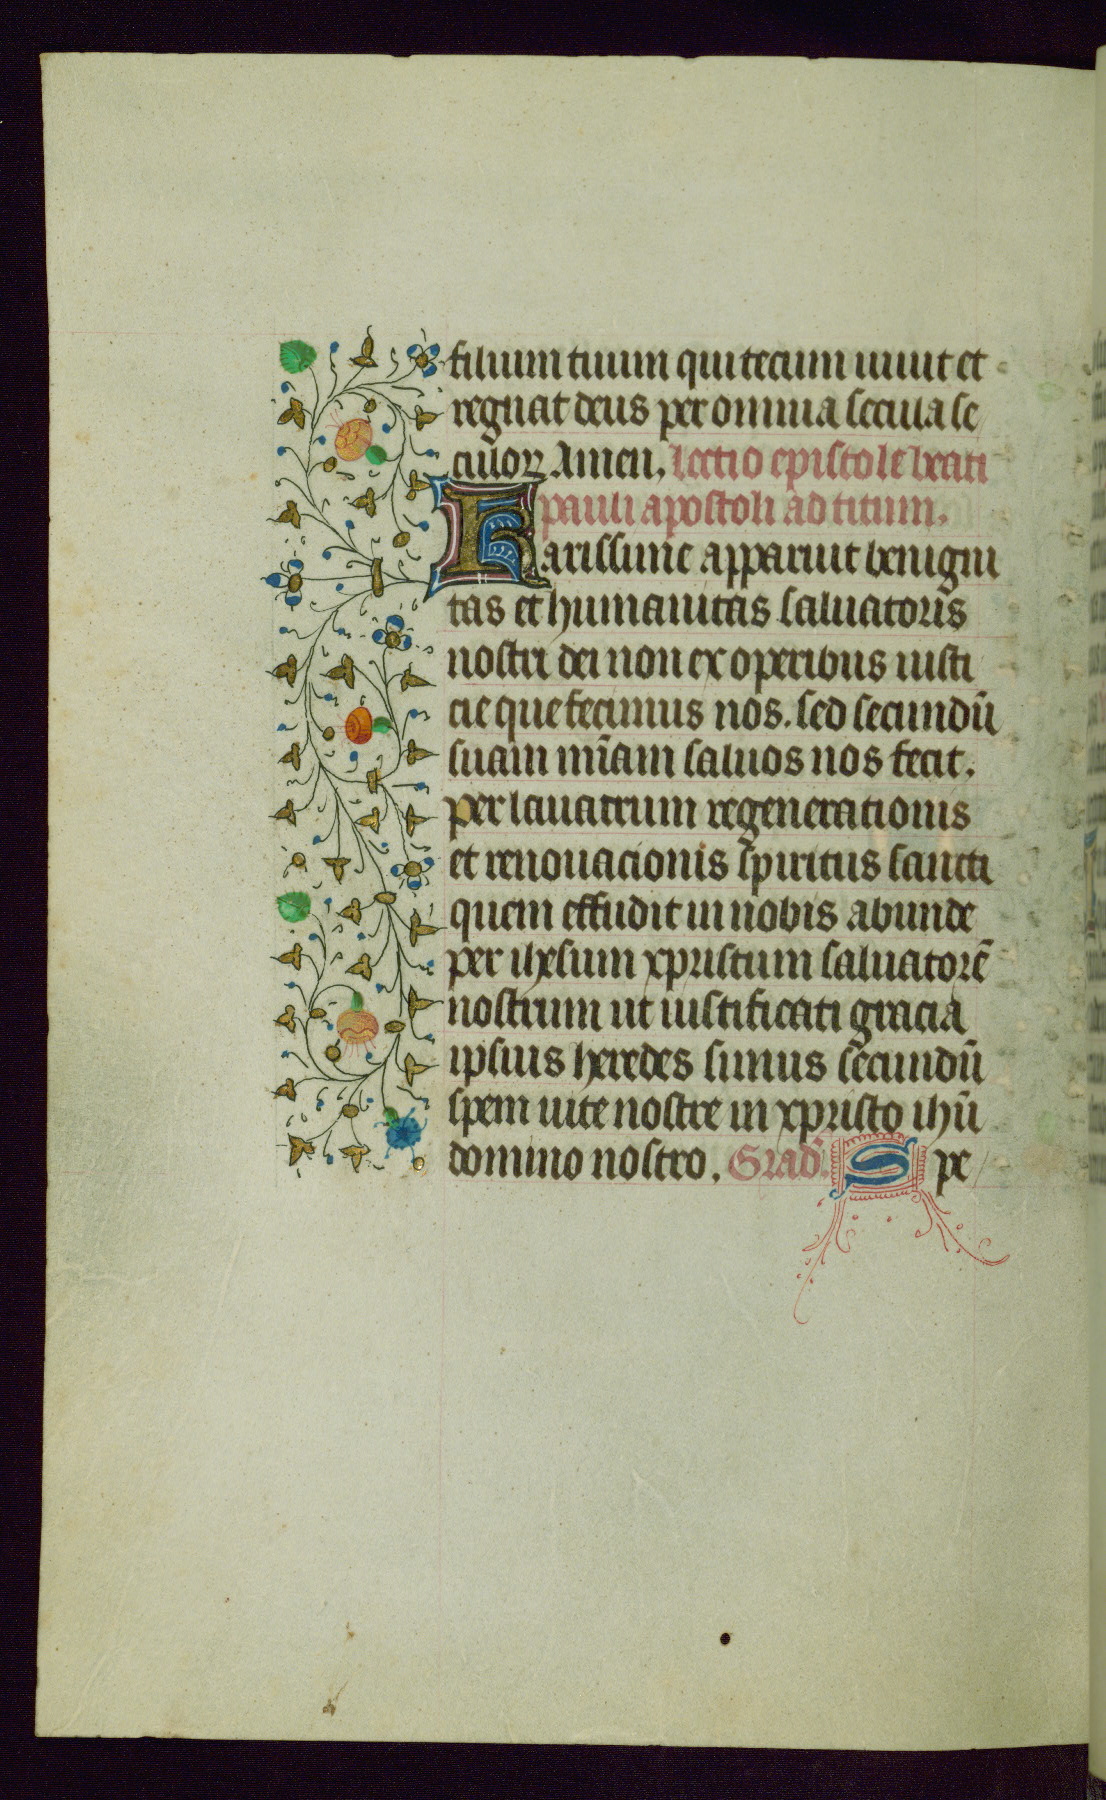 filium tuum qui tecum uiuit et
regnat deus per omnia secula se
culoꝝ Amen. Lectio epistole beati
pauli apostoli ad titum.
Karissime apparuit benigni
tas et humanitas saluatoris
nostri dei non ex operibus iusti
cie que fecimus nos. sed secundū
suam mīam saluos nos fecit.
per lauatrum regenerationis
et renouacionis spiritus sancti
quem effudit in nobis abunde
per ihesum xpristum saluatorē
nostrum ut iustificati gracia
ipsius heredes simus secundū
spem uite nostre in xpristo ihū
domino nostro. Grad. Spe